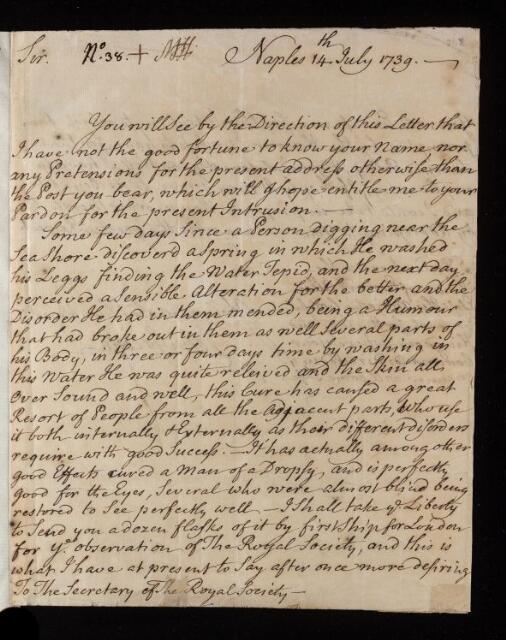 Sir. No. 38. + Naples 14th July 1739. —
You will See by the Direction of this Letter that
I have not the good fortune to know your Name nor
any Pretensions for the present address otherwise than
the Post you bear, which will I hope entitle me to your
Pardon for the present Intrusion. —
Some few days Since a Person digging near the
Sea Shore discover'd a Spring in which He washed
his Leggs finding the Water Tepid, and the next day
perceived a Sensible Alteration for the better and the
Disorder He had in them mended, being a Humour
that had broke out in them as well Several parts of
his Body, in three or four days time by washing in
this Water He was quite releived and the Skin all
over Sound and well, this Cure has caused a great
Resort of People from all the Adjacent parts, who use
it both internally & Externally as their different disorders
require with good Success. — It has actually among other
good Effects cured a Man of a Dropsy, and is perfectly
good for the Eyes, Several who were almost blind being
restored to See perfectly well — I Shall take ye. Liberty
to Send you a dozen flasks of it by first Ship for London
for ye. observation of The Royal Society, and this is
what I have at present to Say after once more desiring
To The Secretary of The Royal Society —